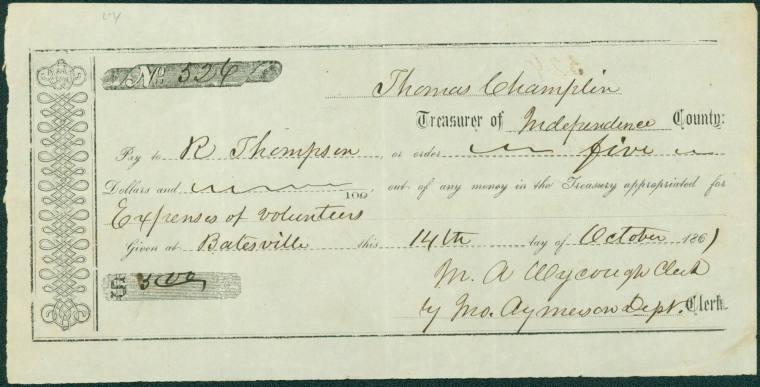 No 524
Thomas Champlin
Treasurer of Independence County:
Pay to R Thompson, or order five
Dollars and /100, out of any money in the Treasury appropriated for
Expenses of volunteers
Given at Batesville this 14th day of October 1861
$ 5.00
M. A Wycough Clerk
by Jno. Dept. Clerk.